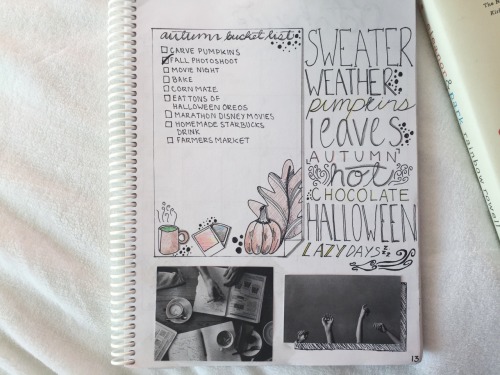 autumn bucket list
CARVE PUMPKINS
FALL PHOTOSHOOT
MOVIE NIGHT
BAKE
CORN MAZE
EAT TONS OF
HALLOWEEN OREOS
MARATHON DISNEY MOVIES
HOMEMADE STARBUCKS
DRINK
FARMERS MARKET
SWEATER
WEATHER
pumpkins
leaves
AUTUMN
hot
CHOCOLATE
HALLOWEEN
LAZY DAYS zzz
13
rainbow rowell